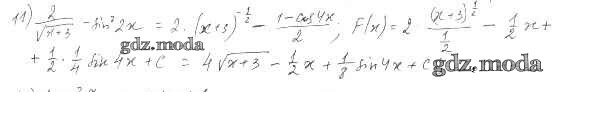 11) 2/√(x+3) − sin² 2x = 2 · (x+3)^(−1/2) − (1−cos4x)/2 ; F(x) = 2 (x+3)^(1/2)/(1/2) − 1/2 x +
gdz.moda
+ 1/2 · 1/4 sin 4x + C = 4√(x+3) − 1/2 x + 1/8 sin 4x + C gdz.moda